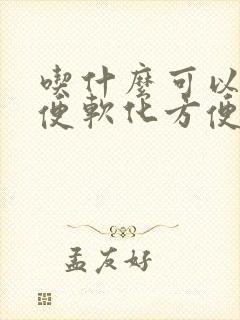 喫什麼可以
便軟化方便
孟友好